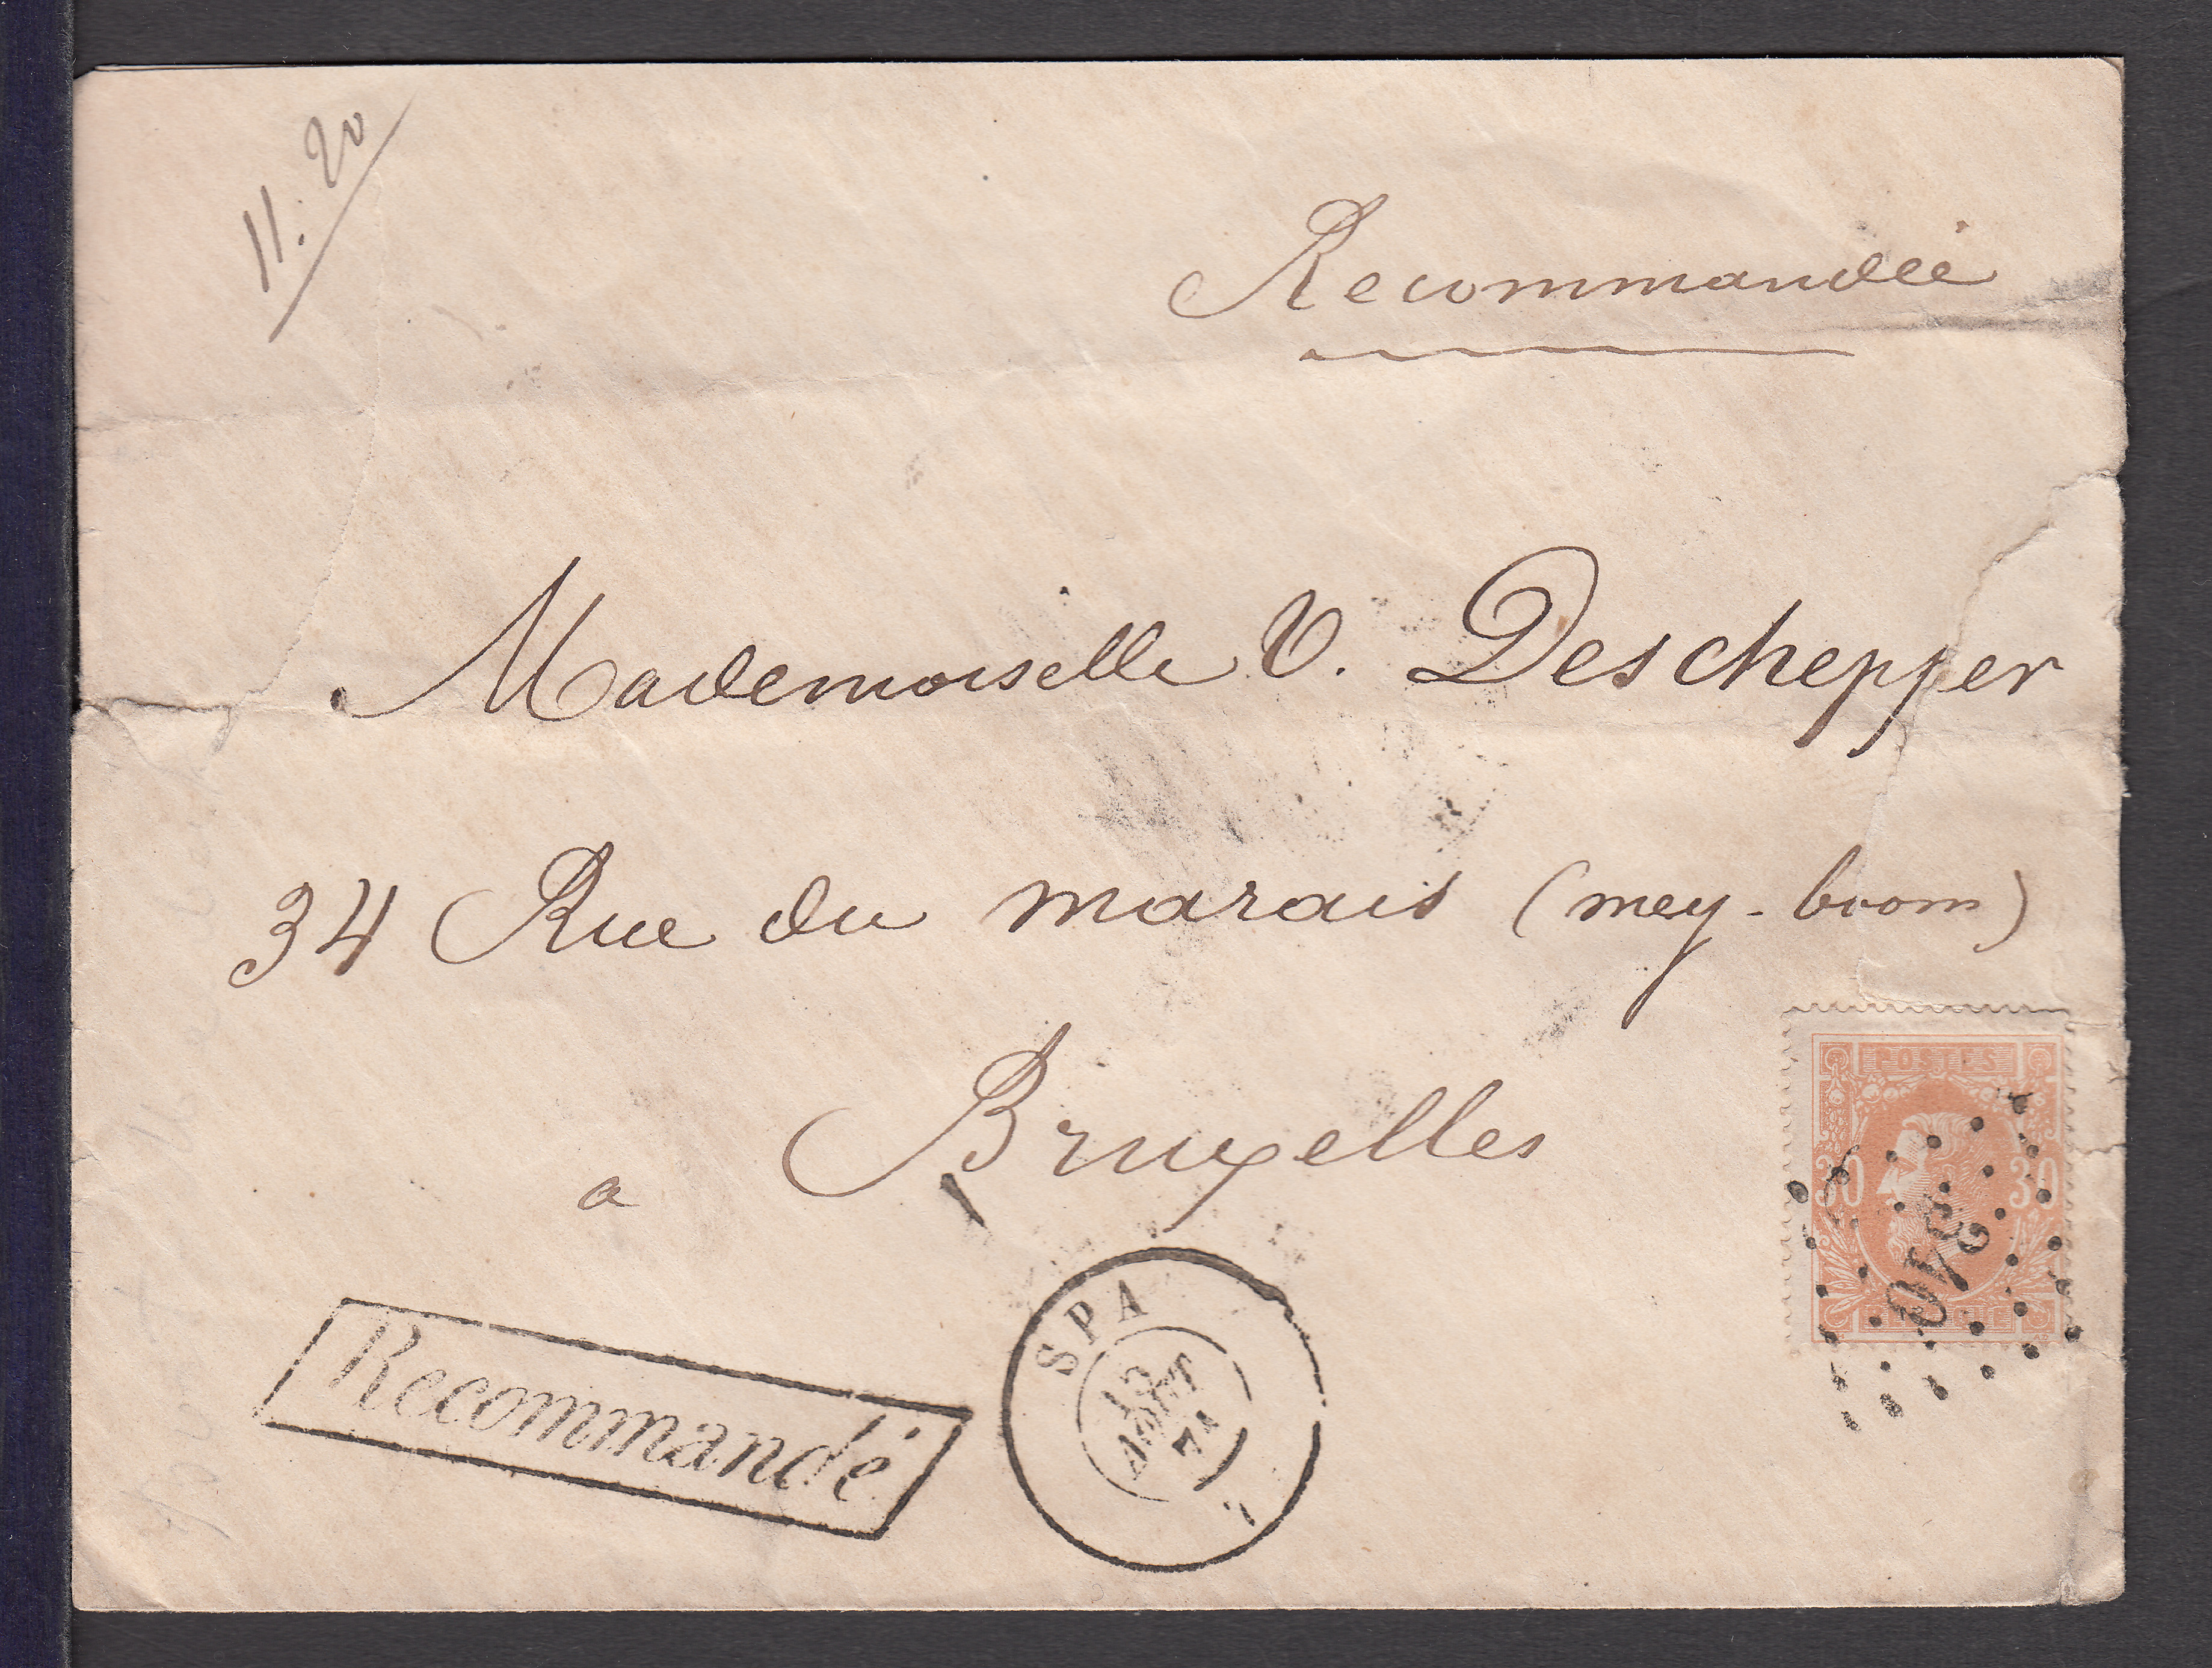 11.20
Recommandée
Mademoiselle V. Deschepper
34 Rue du marais (mey-boom)
a Bruxelles
POSTES
30 30
340
Recommandé
SPA
AOUT
71